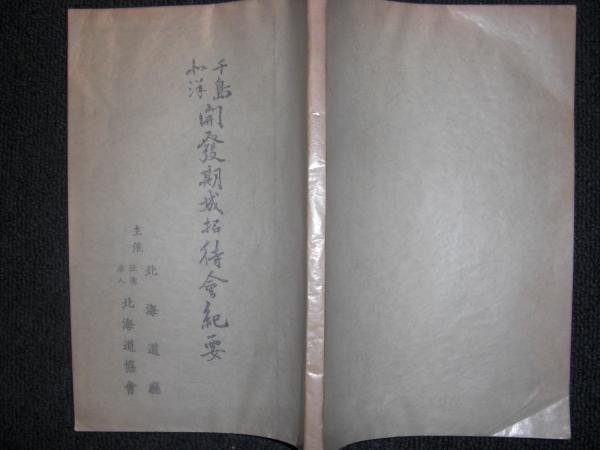 千島
北洋
開發期成招待會紀要
主催 北海道廳
社團法人 北海道協會